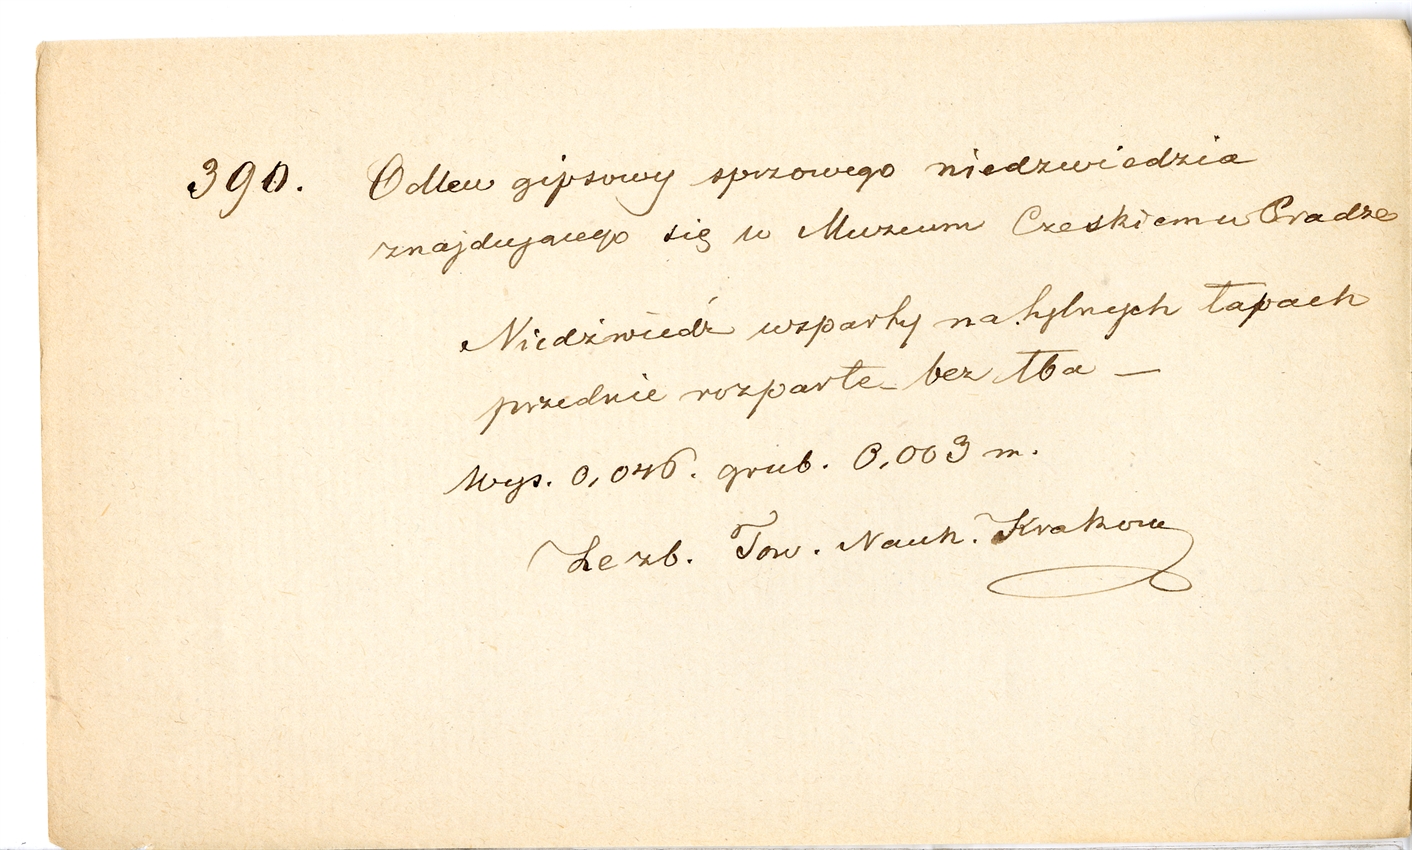 390. Odlew gipsowy sprzowego niedzwiedzia
znajdującego się w Muzeum Czeskiem w Pradze
Niedźwiedź wsparty na tylnych łapach
przednie rozparte – bez łba –
Wys. 0,046. grub. 0,003 m.
Ze zb. Tow. Nauk. Krakow